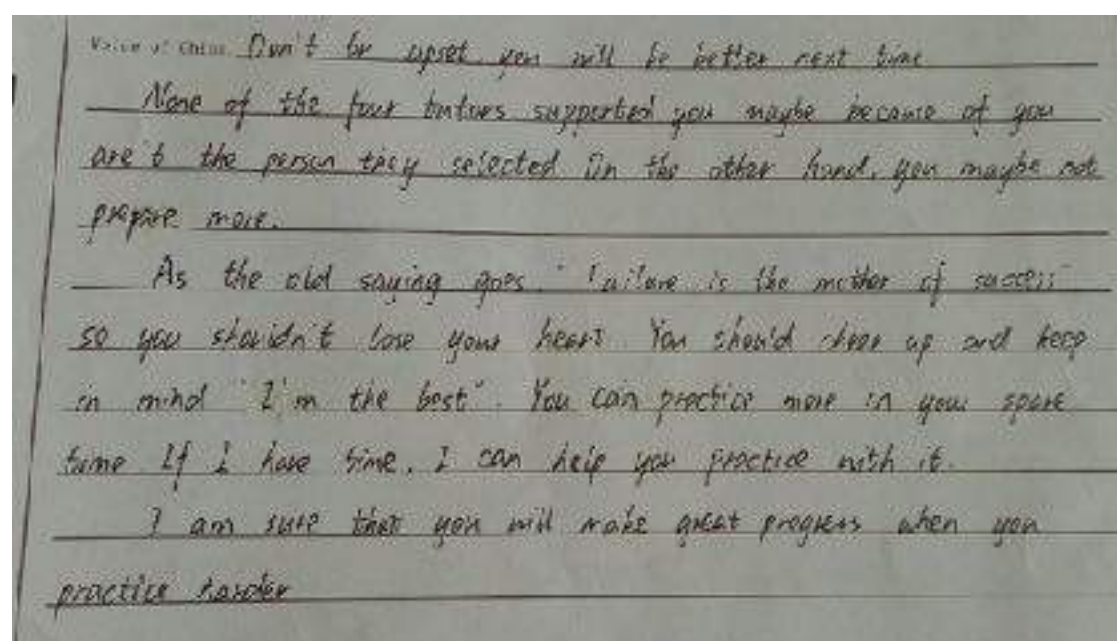 Voice of China. Don't be upset. you will be better next time
None of the four tutors supported you maybe because of you
are't the person they selected On the other hand, you maybe not
prepare more.
As the old saying goes. "Failure is the mother of success"
so you shouldn't lose your heart You should cheer up and keep
in mind "I'm the best". You can practice more in your spare
time If I have time, I can help you practice with it.
I am sure that you will make great progress when you
practice harder